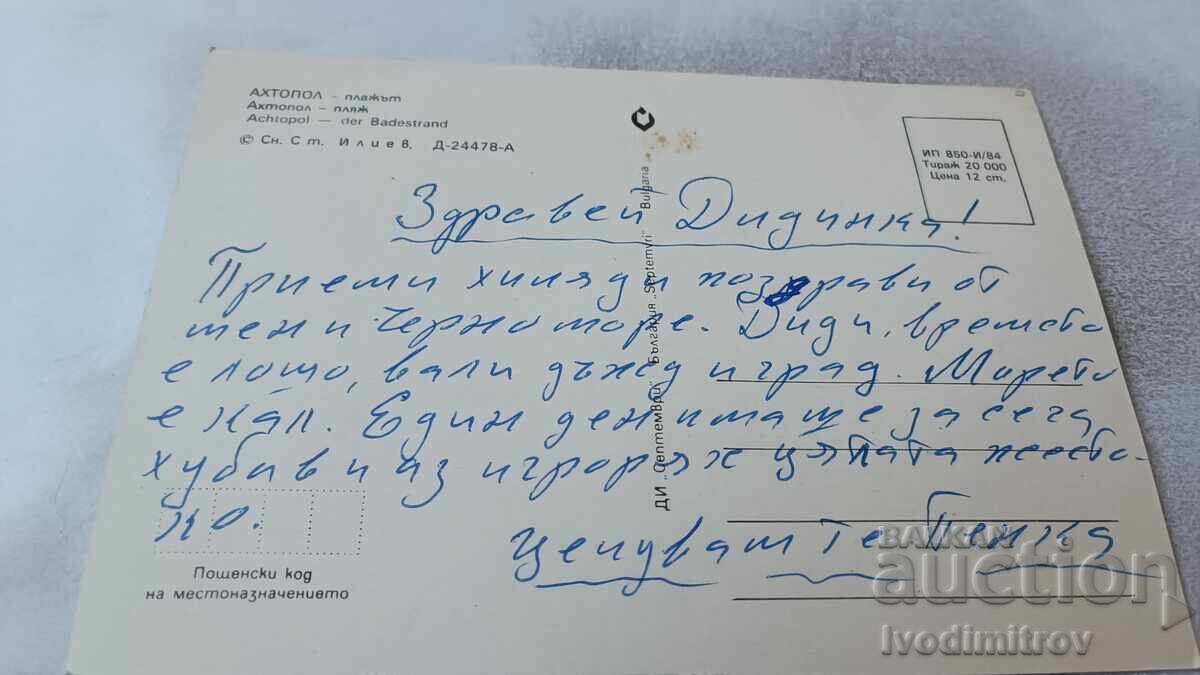 АХТОПОЛ – плажът
Ахтопол – пляж
Achtopol — der Badestrand
© Сн. Ст. Илиев. Д-24478-А
ИП 850-И/84
Тираж 20 000
Цена 12 ст.
ДИ „Септември" България „Septemvri" Bulgaria
Здравей Дидинка!
Приеми хиляди поздрави от
мен и Черно море. Диди, времето
е лошо, вали дъжд и град. Морето
е кал. Един ден имаше за сега
хубав и аз изгорях цялата жесто-
ко.
Целувам те Пенка
Пощенски код
на местоназначението
БАЛКАН
auction
Ivodimitrov